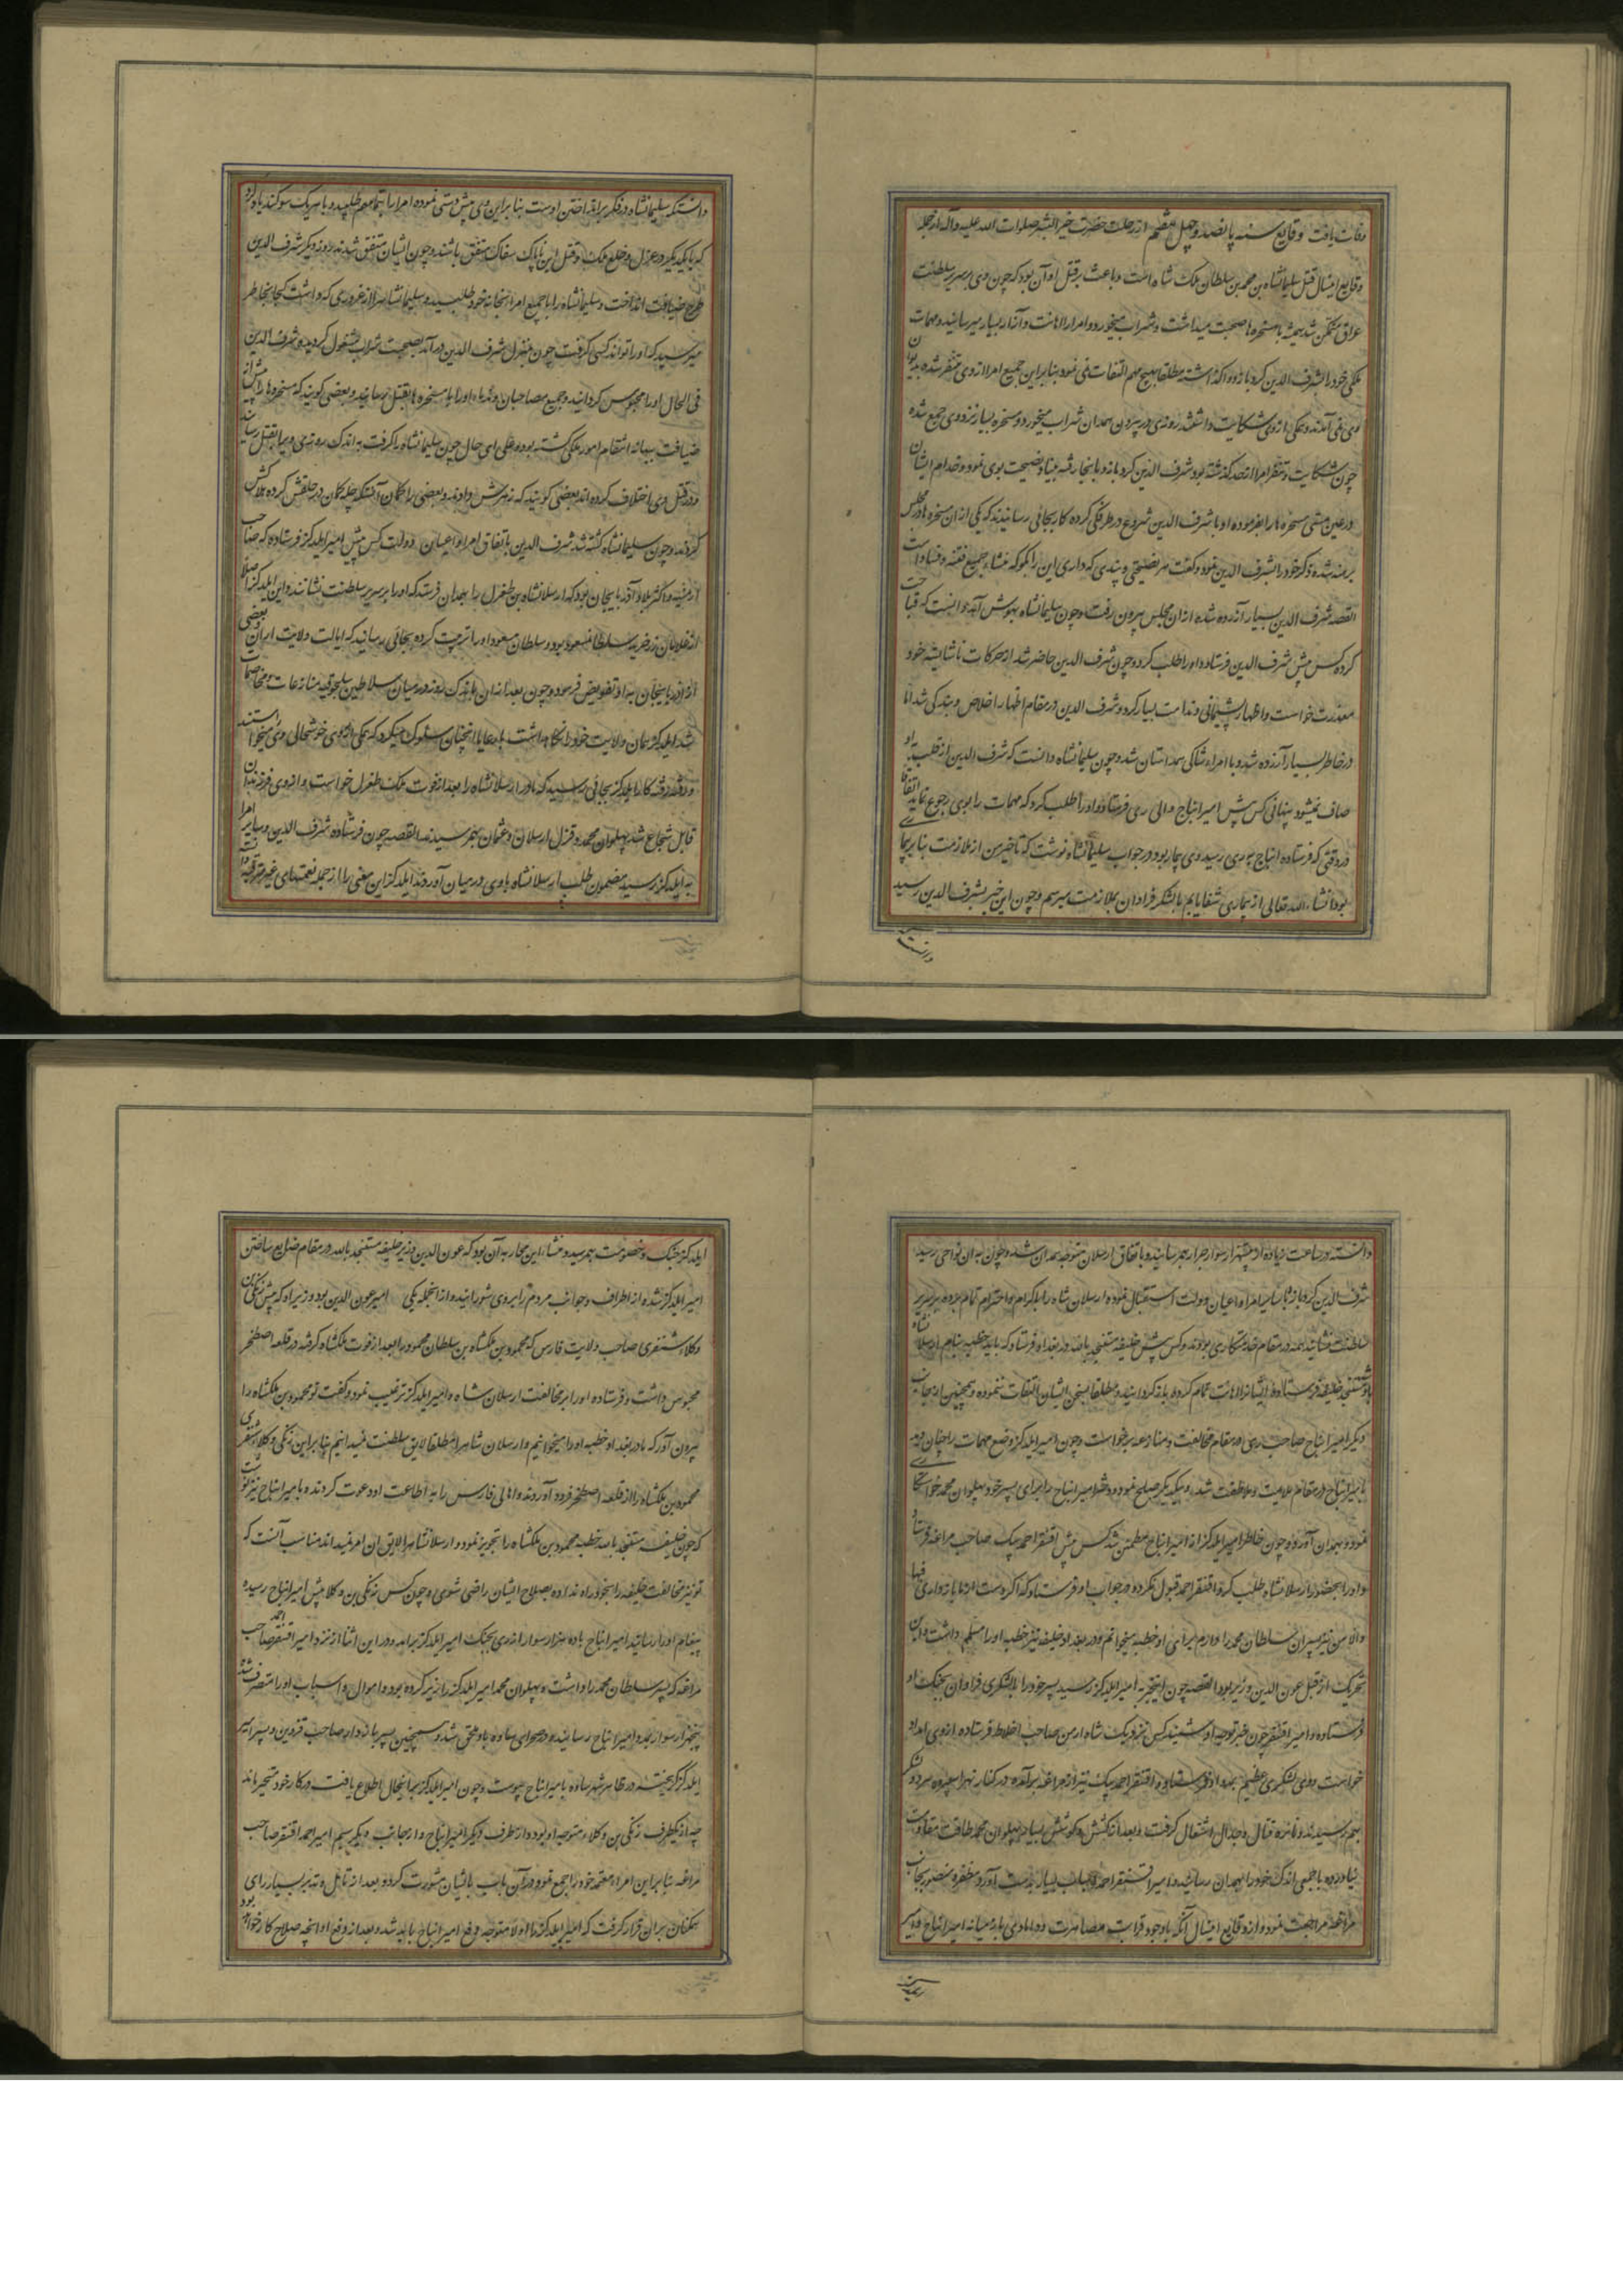 وفات یافت وقایع سنه پانصد و چهل و هشتم از رحلت حضرت خیر البشر صلوات الله علیه و آله از جمله
وقایع امسال قتل سلیمانشاه بن محمد بن سلطان ملک شاه است و باعث بر قتل او آن بود که چون وی بر سریر سلطنت
عراق متمکن شد همیشه با مسخره‌ها صحبت میداشت و شراب میخورد و امرا را اهانت و آزار بسیار میرسانید و مهمات
ملکی خود را بشرف الدین کردبازو واگذاشته مطلقا بهیچ مهم التفات نمی نمود بنا براین جمیع امرا از وی متنفر شده بدیوان
وی نمی آمدند و همگی از وی شکایت داشتند روزی در بیرون همدان شراب میخورد و مسخره بسیار نزد وی جمع شده
چون شکایت و تنفر امرا از حد گذشته بود شرف الدین کردبازو بآنجا رفته بنیاد نصیحت بوی نمود و خدام ایشان
در عین مستی مسخره‌ها را بفرمود تا با شرف الدین شروع در ظرافگی کرده کار بجائی رسانیدند که یکی از آن مسخره‌ها در مجلس
برهنه شده ذکر خود را بشرف الدین نمود و گفت هر نصیحتی و پندی که داری این را بگو که منشاء جمیع فتنه و فساد است
القصه شرف الدین بسیار آزرده شده از آن مجلس بیرون رفت و چون سلیمانشاه بهوش آمد دانست که قباحت
کرده کس پیش شرف الدین فرستاده او را طلب کرد و چون شرف الدین حاضر شد از حرکات ناشایسته خود
معذرت خواست و اظهار پشیمانی و ندامت بسیار کرد و شرف الدین در مقام اظهار اخلاص و بندگی شد اما
در خاطر بسیار آزرده شد و با امراء شاکی همداستان شد و چون سلیمانشاه دانست که شرف الدین از قلب با او
صاف نمیشود پنهانی کس پیش امیر اینانج والی ری فرستاد و او را طلب کرد که مهمات را بوی رجوع نماید اتفاقا
در وقتی که فرستاده اینانج به ری رسید وی بیمار بود در جواب سلیمانشاه نوشت که تاخیر من از ملازمت بنا بر بیماری
بود انشاء الله تعالی از بیماری شفا یابم با لشکر فراوان بملازمت میرسم و چون این خبر بشرف الدین رسید
دانست
دانست که سلیمانشاه در فکر برانداختن اوست بنا براین وی پیش دستی نموده امرا را بتمامهم طلبید و با هر یک سوگند یاد کرد
که با یکدیگر در عزل و خلع ملک و قتل این ناپاک سفاک متفق باشند و چون ایشان متفق شدند روز دیگر شرف الدین
طرح ضیافت انداخت و سلیمانشاه را با جمیع امرا بخانه خود طلبید و سلیمانشاه را از غروری که داشت کجا بخاطر
میرسید که او را تواند کسی گرفت چون بمنزل شرف الدین درآمد بصحبت شراب مشغول گردید و شرف الدین
فی الحال او را محبوس گردانید و جمیع مصاحبان و ندماء او را با مسخره‌ها بقتل رسانید و بعضی گویند که مسخره‌ها را پیش از
ضیافت ببهانه انتظام امور ملکی کشته بود و علی ای حال چون سلیمانشاه را گرفت به اندک روزی ویرا بقتل رسانید
و در قتل وی اختلاف کرده‌اند بعضی گویند که زهرش دادند و بعضی را گمان آنستکه چله کمان در حلقش کرده هلاکش
کردند و چون سلیمانشاه کشته شد شرف الدین باتفاق امرا و اعیان دولت کس پیش امیر ایلدکز فرستاده که صاحب
ارمنیه و اکثر بلاد آذربایجان بود که ارسلانشاه بن طغرل را بهمدان فرستد که او را بر سریر سلطنت نشانند و این ایلدکز اصلا
از غلامان زرخرید سلطان مسعود بود و سلطان مسعود او را تربیت کرده بجائی رسانید که ایالت ولایت ایران و بعضی
از آذربایجان به او تفویض فرمود و چون بعد از آن باندک روز در میان سلاطین سلجوقیه منازعات و مخاصمات
شد ایلدکز همان ولایت خود را نگاه داشت با رعایا آنچنان سلوک میکرد که همگی از وی خوشحالی وی میخواستند
و رفته رفته کار ایلدکز بجائی رسید که مادر ارسلانشاه را بعد از فوت ملک طغرل خواست و از وی فرزندان
قابل شجاع شد پهلوان محمد و قزل ارسلان و عثمان بهم رسیدند القصه چون فرستاده شرف الدین و سایر امرا
به ایلدکز رسید مضمون طلب ارسلانشاه باوی در میان آوردند ایلدکز این معنی را از جمله نعمتهای غیر مترقبه
دانسته در ساعت زیاده از بیست هزار سوار جرار بهم رسانید و باتفاق ارسلان متوجه همدان شد و چون به آن نواحی رسید
شرف الدین کردبازو با سایر امرا و اعیان دولت استقبال نموده ارسلان شاه را باکرام و احترام تمام برده بر سریر
سلطنت نشانیدند همه در مقام خدمتکاری بودند و کس پیش خلیفه مستنجد بالله در بغداد فرستاد که باید خطبه بنام ارسلانشاه
مستنجد خلیفه فرستاده ایشانرا اهانت تمام کرده بازگردانید و مطلقا بسخن ایشان التفات ننموده و همچنین از جانب
دیگر امیر اینانج صاحب ری در مقام مخالفت و منازعه برخواست و چون امیر ایلدکز وضع مهمات را چنان دید
با امیر اینانج در مقام ملایمت و ملاطفت شد و بیکدیگر صلح نمود و دختر امیر اینانج را برای پسر خود پهلوان محمد خواستگاری
نمود و بهمدان آورد و چون خاطر امیر ایلدکز از امیر اینانج مطمئن شد کس پیش اقنسقر احمدیلی صاحب مراغه فرستاد
و او را بحضور ارسلانشاه طلب کرد اقنسقر احمد قبول نکرده در جواب او فرستاد که اگر دست از ما بازداری فبها
والا من نیز پسران سلطان محمد را دارم برای او خطبه میخوانم و در بغداد خلیفه نیز خطبه او را مسلم داشت و این
تحریک از قبل عون الدین وزیر بود القصه چون این خبر به امیر ایلدکز رسید پسر خود را با لشکری فراوان بجنگ او
فرستاد و امیر اقنسقر چون خبر توجه او شنید کس نزدیک شاه ارمن صاحب اخلاط فرستاده از وی امداد
خواست وی لشکری عظیم بمدد او فرستاد و اقنسقر احمدیلی نیز از مراغه برآمده در کنار نهر اسپیدرود دو لشکر
بهم رسیدند و نایره قتال و جدال اشتعال گرفت و بعد از کشش و کوشش بسیار پهلوان محمد طاقت مقاومت
نیاورده با جمعی اندک خود را بهمدان رسانید و امیر اقنسقر احمد اسباب بسیار بدست آورد و مظفر و منصور بجانب
مراغه مراجعت نمود و از وقایع امسال آنکه با وجود قرابت مصاهرت و دامادی باز میانه امیر اینانج و امیر
ایلدکز جنگ و خصومت بهم رسید و منشاء این محاربه آن بود که عون الدین وزیر خلیفه مستنجد بالله در مقام ضایع ساختن
امیر ایلدکز شده از اطراف و جوانب مردم را بروی شورانید و از آنجمله یکی امیر عون الدین بود وزیر او که پیش زنگی بن
وکلاء سنقری صاحب ولایت فارس که محمود بن ملکشاه بن سلطان محمود را بعد از فوت ملکشاه گرفته در قلعه اصطخر
محبوس داشت و فرستاده او را بر مخالفت ارسلان شاه و امیر ایلدکز ترغیب نمود و گفت تو محمود بن ملکشاه را
بیرون آور که ما در بغداد خطبه او را میخوانیم و ارسلان شاه را مطلقا لایق سلطنت نمیدانیم بنا براین زنگی وکلاء سنقری
محمود بن ملکشاه را از قلعه اصطخر فرود آورده و اهالی فارس را به اطاعت او دعوت کردند و با امیر اینانج نیز نوشت
که چون خلیفه مستنجد بالله خطبه محمود بن ملکشاه را تجویز نمود و ارسلانشاه را لایق آن امر نمیداند مناسب آنست که
تو نیز مخالفت خلیفه را بخود راه نداده بصلاح ایشان راضی شوی و چون کس زنگی بن وکلا پیش امیر اینانج رسیده
پیغام او را رسانید امیر اینانج با ده هزار سوار از ری بجنگ امیر ایلدکز برآمد و در این اثنا از نزد امیر اقنسقر احمد صاحب
مراغه که پسر سلطان محمد را داشت و پهلوان محمد امیر ایلدکز را زیر کرده بود و اموال و اسباب او را متصرف شد
پنجهزار سوار بمدد امیر اینانج رسانیده در صحرای ساوه باو ملحق شد و همچنین پسر بازدار صاحب قزوین و پسر امیر
ایلدکز گریخته در ظاهر شهر ساوه با امیر اینانج پیوست و چون امیر ایلدکز بر اینحال اطلاع یافت در کار خود متحیر ماند
چه از یکطرف زنگی بن وکلاء متوجه او بود و از طرف دیگر امیر اینانج و از جانب دیگر سیم امیر احمد اقنسقر صاحب
مراغه بنا براین امراء معتمد خود را جمع نمود و در آن باب با ایشان مشورت کرد و بعد از تامل و تدبر بسیار رای
همگنان بر آن قرار گرفت که امیر ایلدکز اولا متوجه دفع امیر اینانج باید شد و بعد از دفع او آنچه صلاح کار خواهد بود